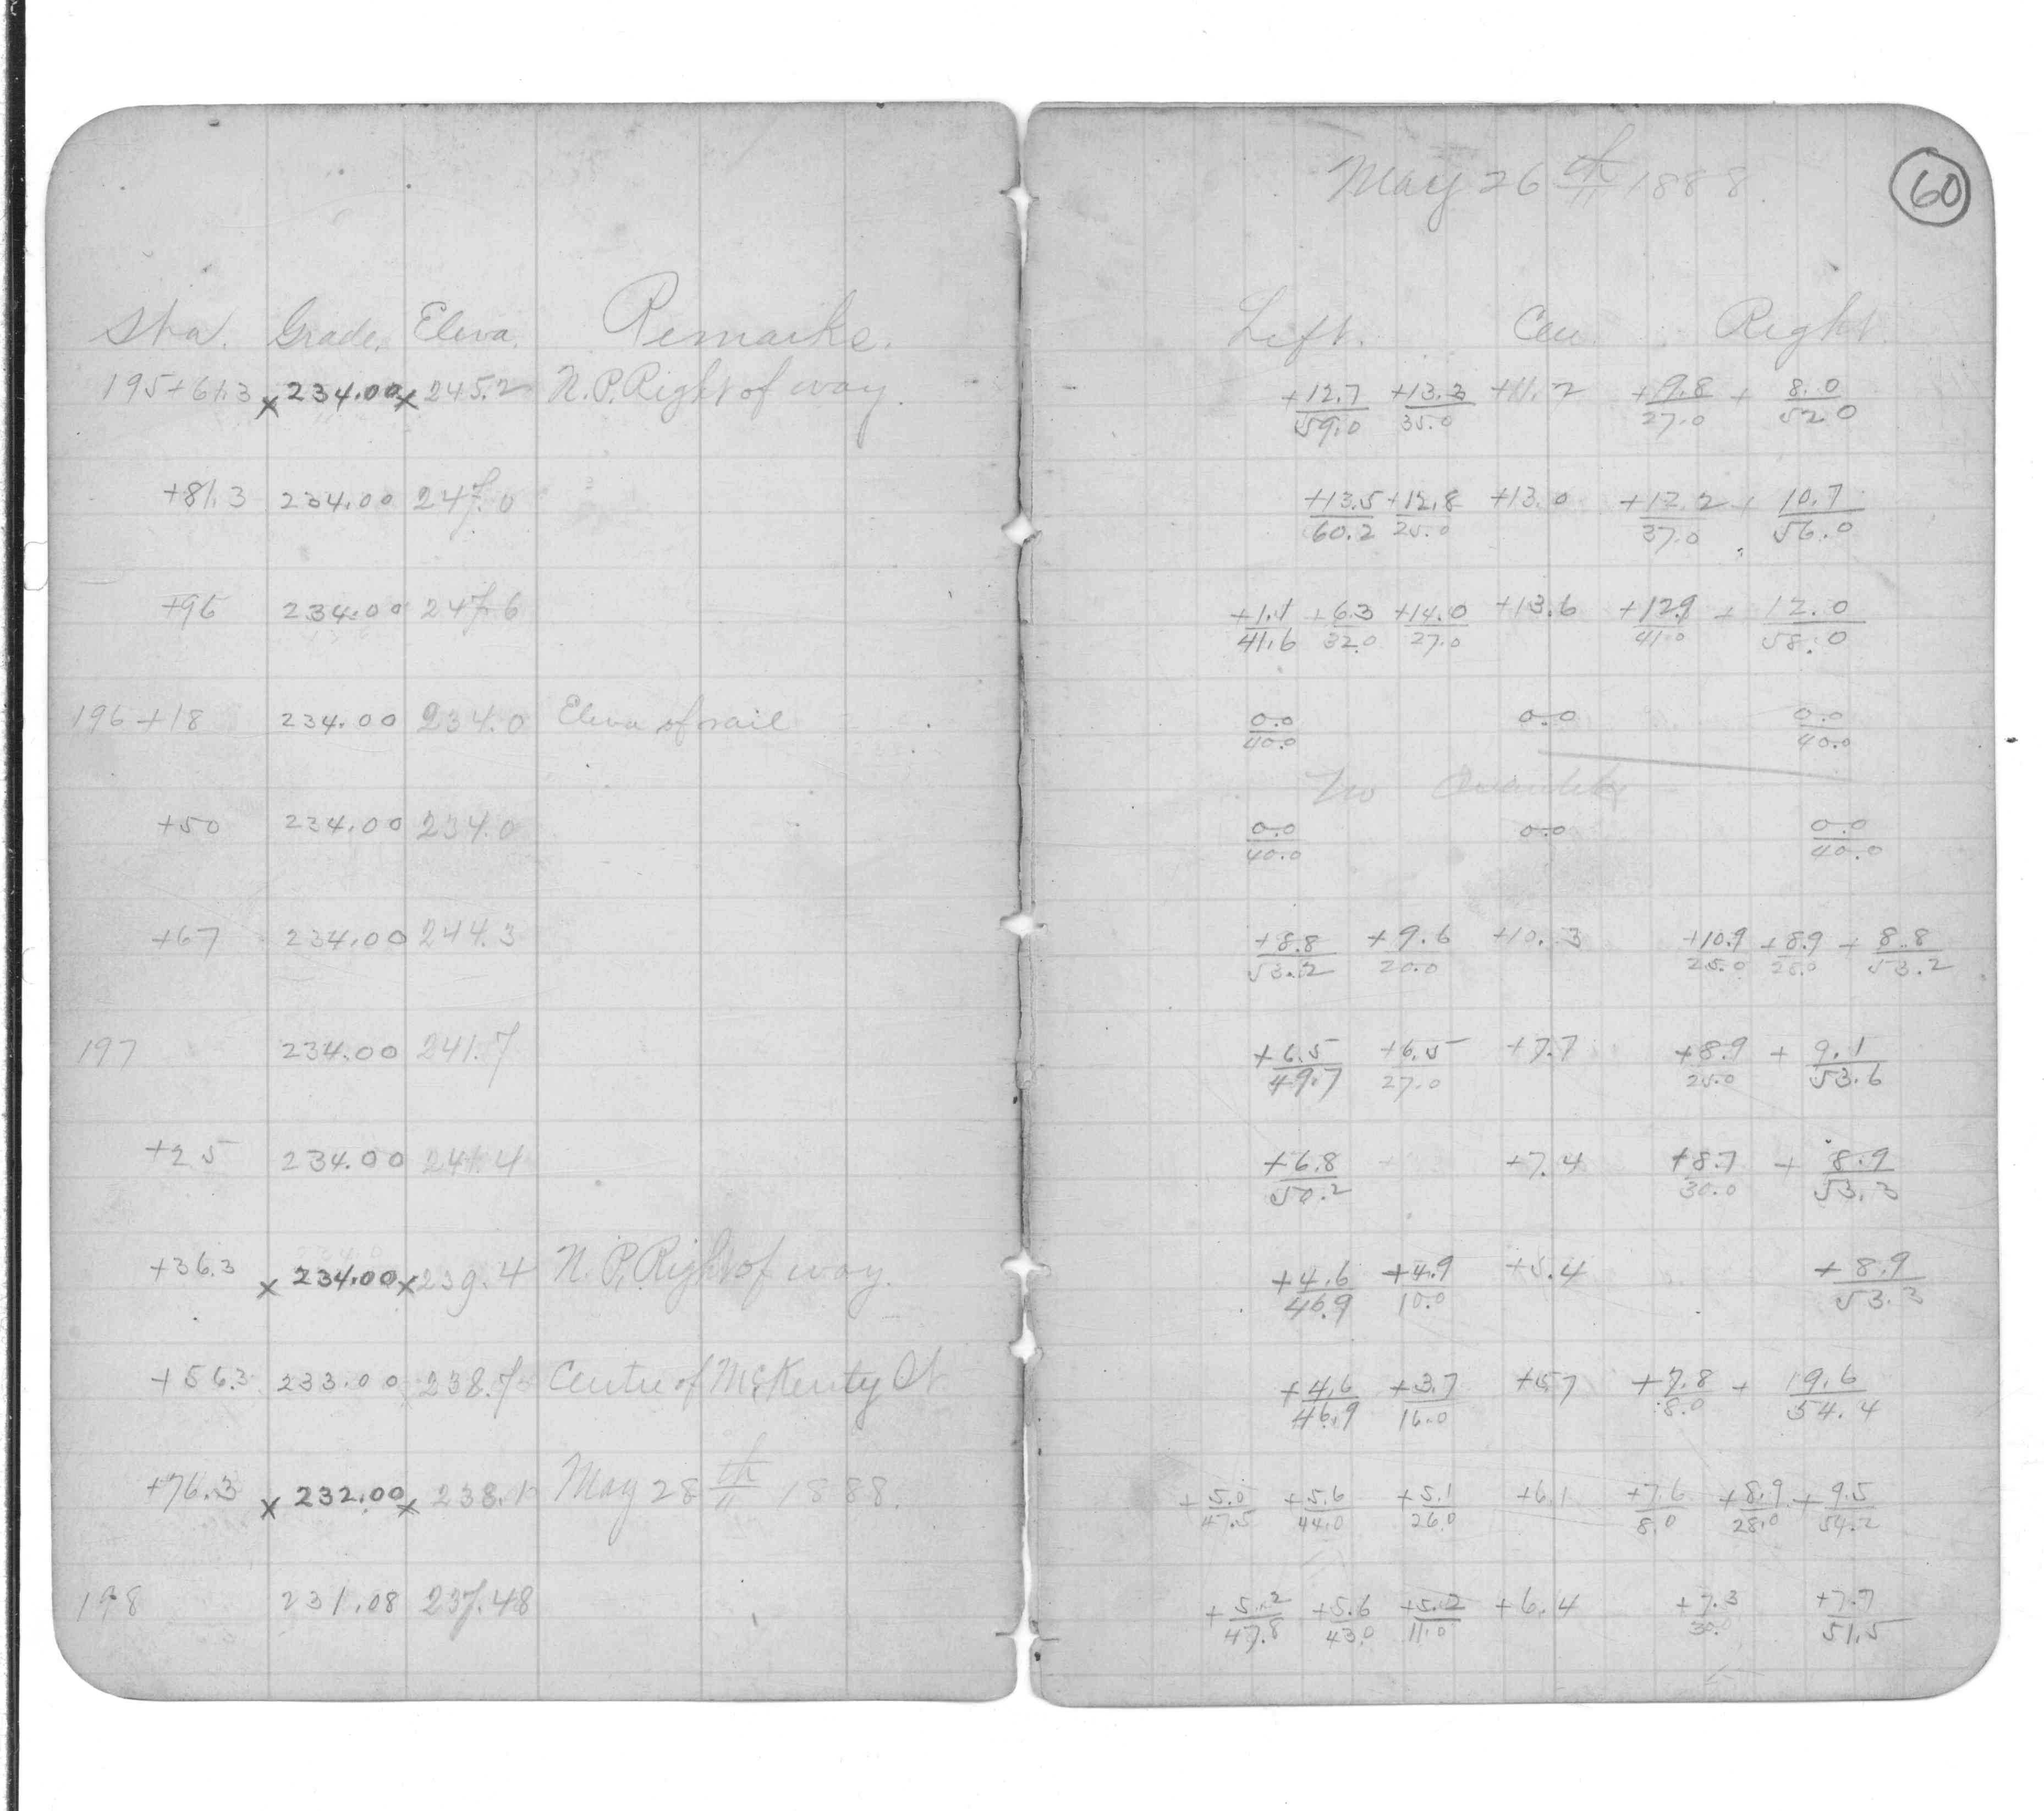 May 26th 1888.
60
Sta. Grade. Eleva. Remarks.
Left. Cen Right.
195+61.3 x 234.00 x 245.2 N.P. Right of way.
+12.7/59.0 +13.3/35.0 +11.2 +9.8/27.0 + 8.0/52.0
+81.3 234.00 247.0
+13.5/60.2 +12.8/25.0 +13.0 +12.2/37.0 + 10.7/56.0
+96 234.00 247.6
+1.1/41.6 +6.3/32.0 +14.0/27.0 +13.6 +12.9/41.0 + 12.0/58.0
196+18 234.00 234.0 Eleva of rail
0.0/40.0 0.0 0.0/40.0
No Quantities
+50 234.00 234.0
0.0/40.0 0.0 0.0/40.0
+67 234.00 244.3
+8.8/53.2 +9.6/20.0 +10.3 +10.9/25.0 +8.9/25.0 + 8.8/53.2
197 234.00 241.7
+6.5/49.7 +6.5/27.0 +7.7 +8.9/25.0 + 9.1/53.6
+25 234.00 241.4
+6.8/50.2 +7.4 +8.7/30.0 + 8.9/53.3
+36.3 x 234.00 x 239.4 N.P. Right of way.
+4.6/46.9 +4.9/10.0 +5.4 +8.9/53.3
+56.3 233.00 238.7 Centre of McKenty St
+4.6/46.9 +3.7/16.0 +5.7 +7.8/8.0 + 9.6/54.4
+76.3 x 232.00 x 238.1 May 28th 1888.
+5.0/47.5 +5.6/44.0 +5.1/26.0 +6.1 +7.6/8.0 +8.9/28.0 + 9.5/54.2
198 231.08 237.48
+5.2/47.8 +5.6/43.0 +5.2/11.0 +6.4 +7.3/30.0 +7.7/51.5